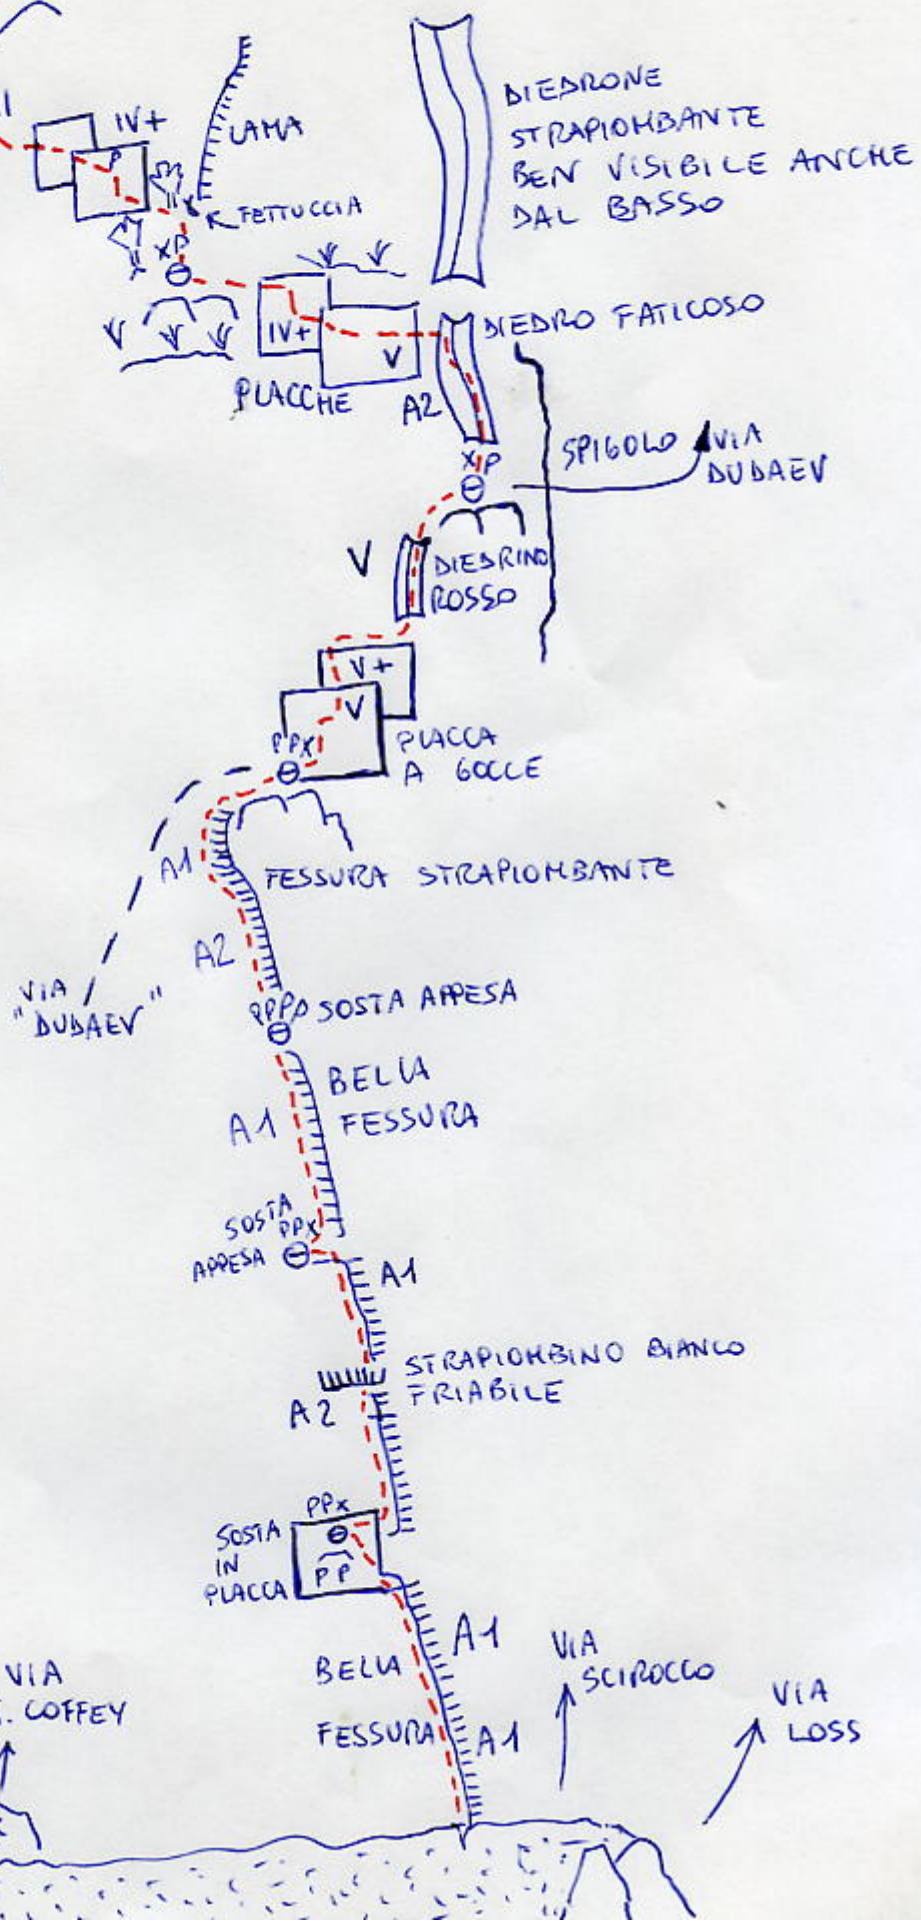 IV+
LAMA
P
FETTUCCIA
x P
DIEDRONE
STRAPIOMBANTE
BEN VISIBILE ANCHE
DAL BASSO
IV+
V
PLACCHE
DIEDRO FATICOSO
A2
x P
SPIGOLO
VIA
DUDAEV
V
DIEDRINO
ROSSO
V+
V
PPx
PLACCA
A GOCCE
A1
FESSURA STRAPIOMBANTE
A2
VIA
"DUDAEV"
PPPP SOSTA APPESA
BELLA
A1
FESSURA
SOSTA
PPx
APPESA
A1
STRAPIOMBINO BIANCO
FRIABILE
A2
PPx
SOSTA
IN
PLACCA
PP
A1
BELLA
FESSURA
A1
VIA
SCIROCCO
VIA
LOSS
VIA
. COFFEY